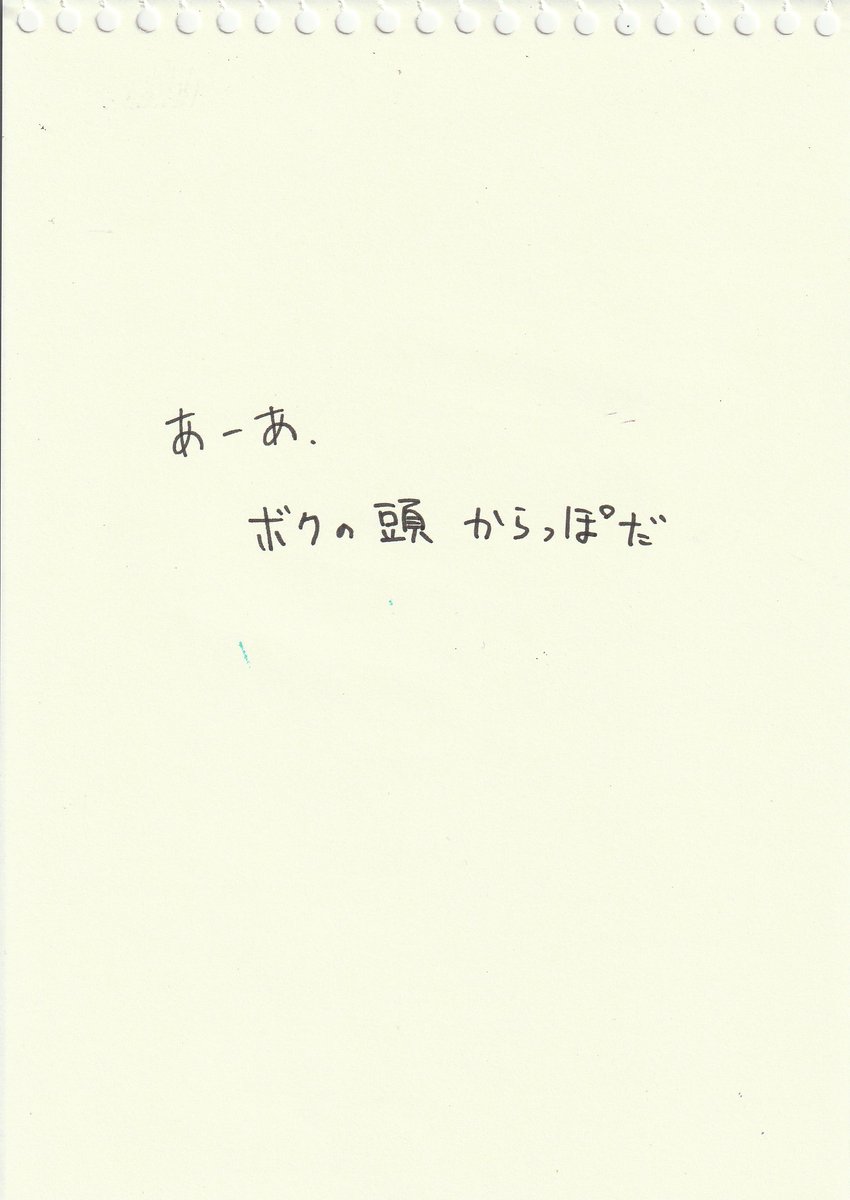 あーあ.
ボクの頭 からっぽだ